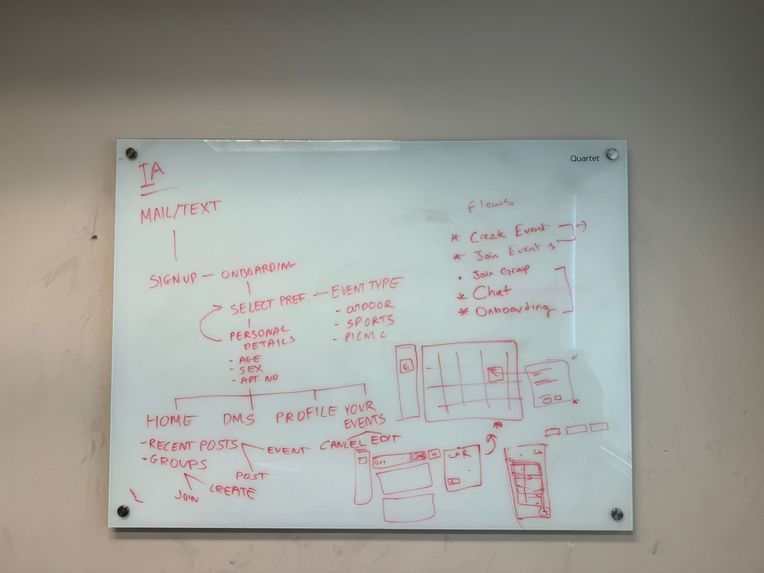 Quartet
IA
MAIL/TEXT
SIGNUP - ONBOARDING
SELECT PREF. - EVENT TYPE
- OUTDOOR
- SPORTS
- PICNIC
PERSONAL
DETAILS
- AGE
- SEX
- APT. NO
HOME DMS PROFILE YOUR
EVENTS
- RECENT POSTS
- GROUPS
JOIN
CREATE
POST
EVENT
CANCEL EDIT
Flows
* Create Event
* Join Event
• Join Group
* Chat
* Onboarding